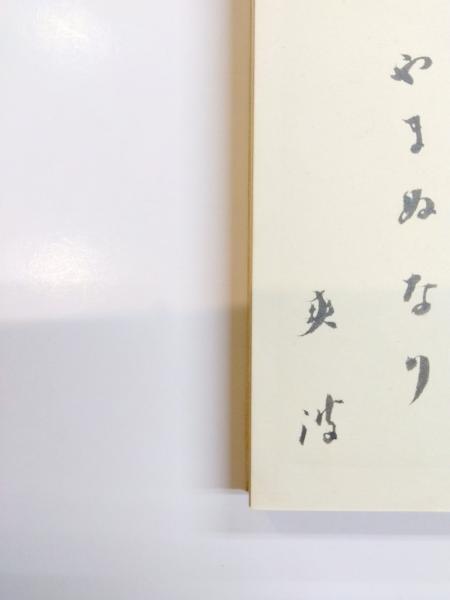 やまぬなり
爽波